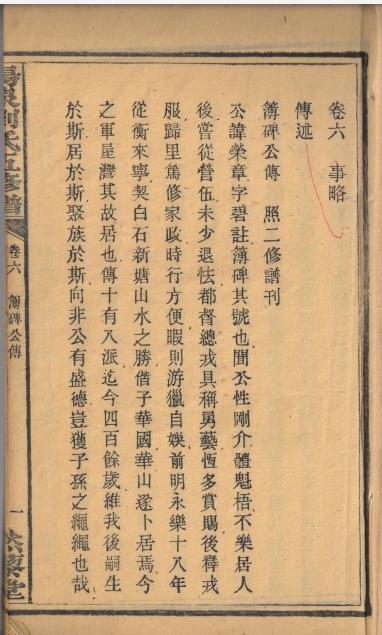 卷六　事略
傳述
簿碑公傳　照二修譜刊
公諱榮章字碧註簿碑其號也聞公性剛介體魁梧不樂居人
後嘗從營伍未少退怯都督總戎具稱勇藝恆多賞賜後釋戎
服歸里篤修家政時行方便暇則游獵自娛前明永樂十八年
從衡來寧契白石新塘山水之勝偕子華國華山遂卜居焉今
之軍屋灣其故居也傳十有八派迄今四百餘歲維我後嗣生
於斯居於斯聚族於斯向非公有盛德豈獲子孫之繩繩也哉
劉氏五修譜
卷六
簿碑公傳
一